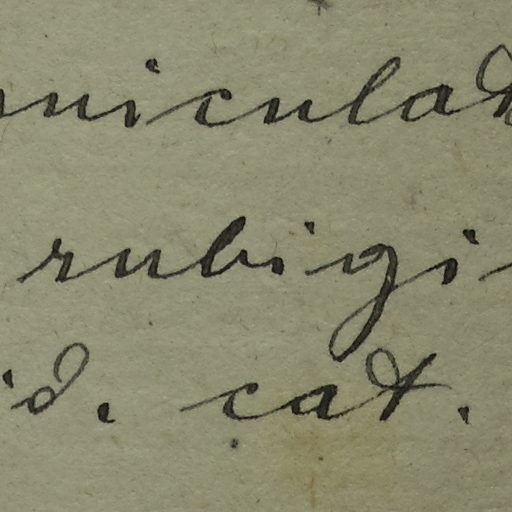 niculat
rubigi
id. cat.